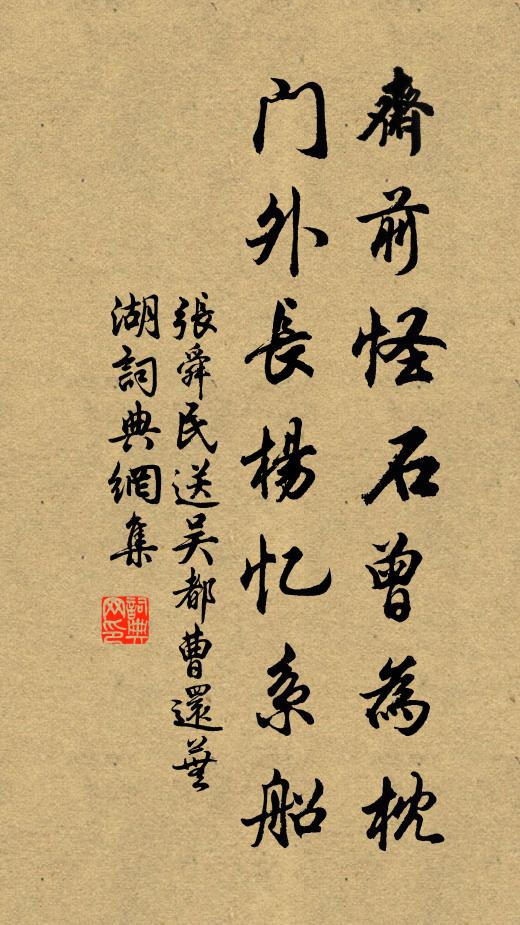 齋前怪石曾為枕
門外長楊忆系船
張舜民送吴都曹還蕪
湖詞典網集
詞典
网印